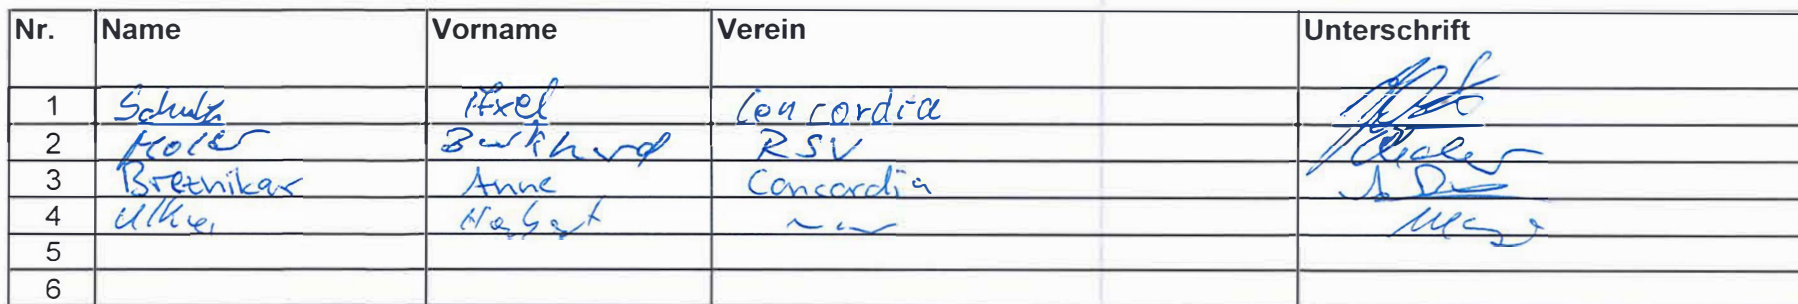 Nr. Name Vorname Verein Unterschrift
1 Schulz Axel Concordia
2 Burkhard RSV
3 Breznikar Anne Concordia
4 Herbert
5
6